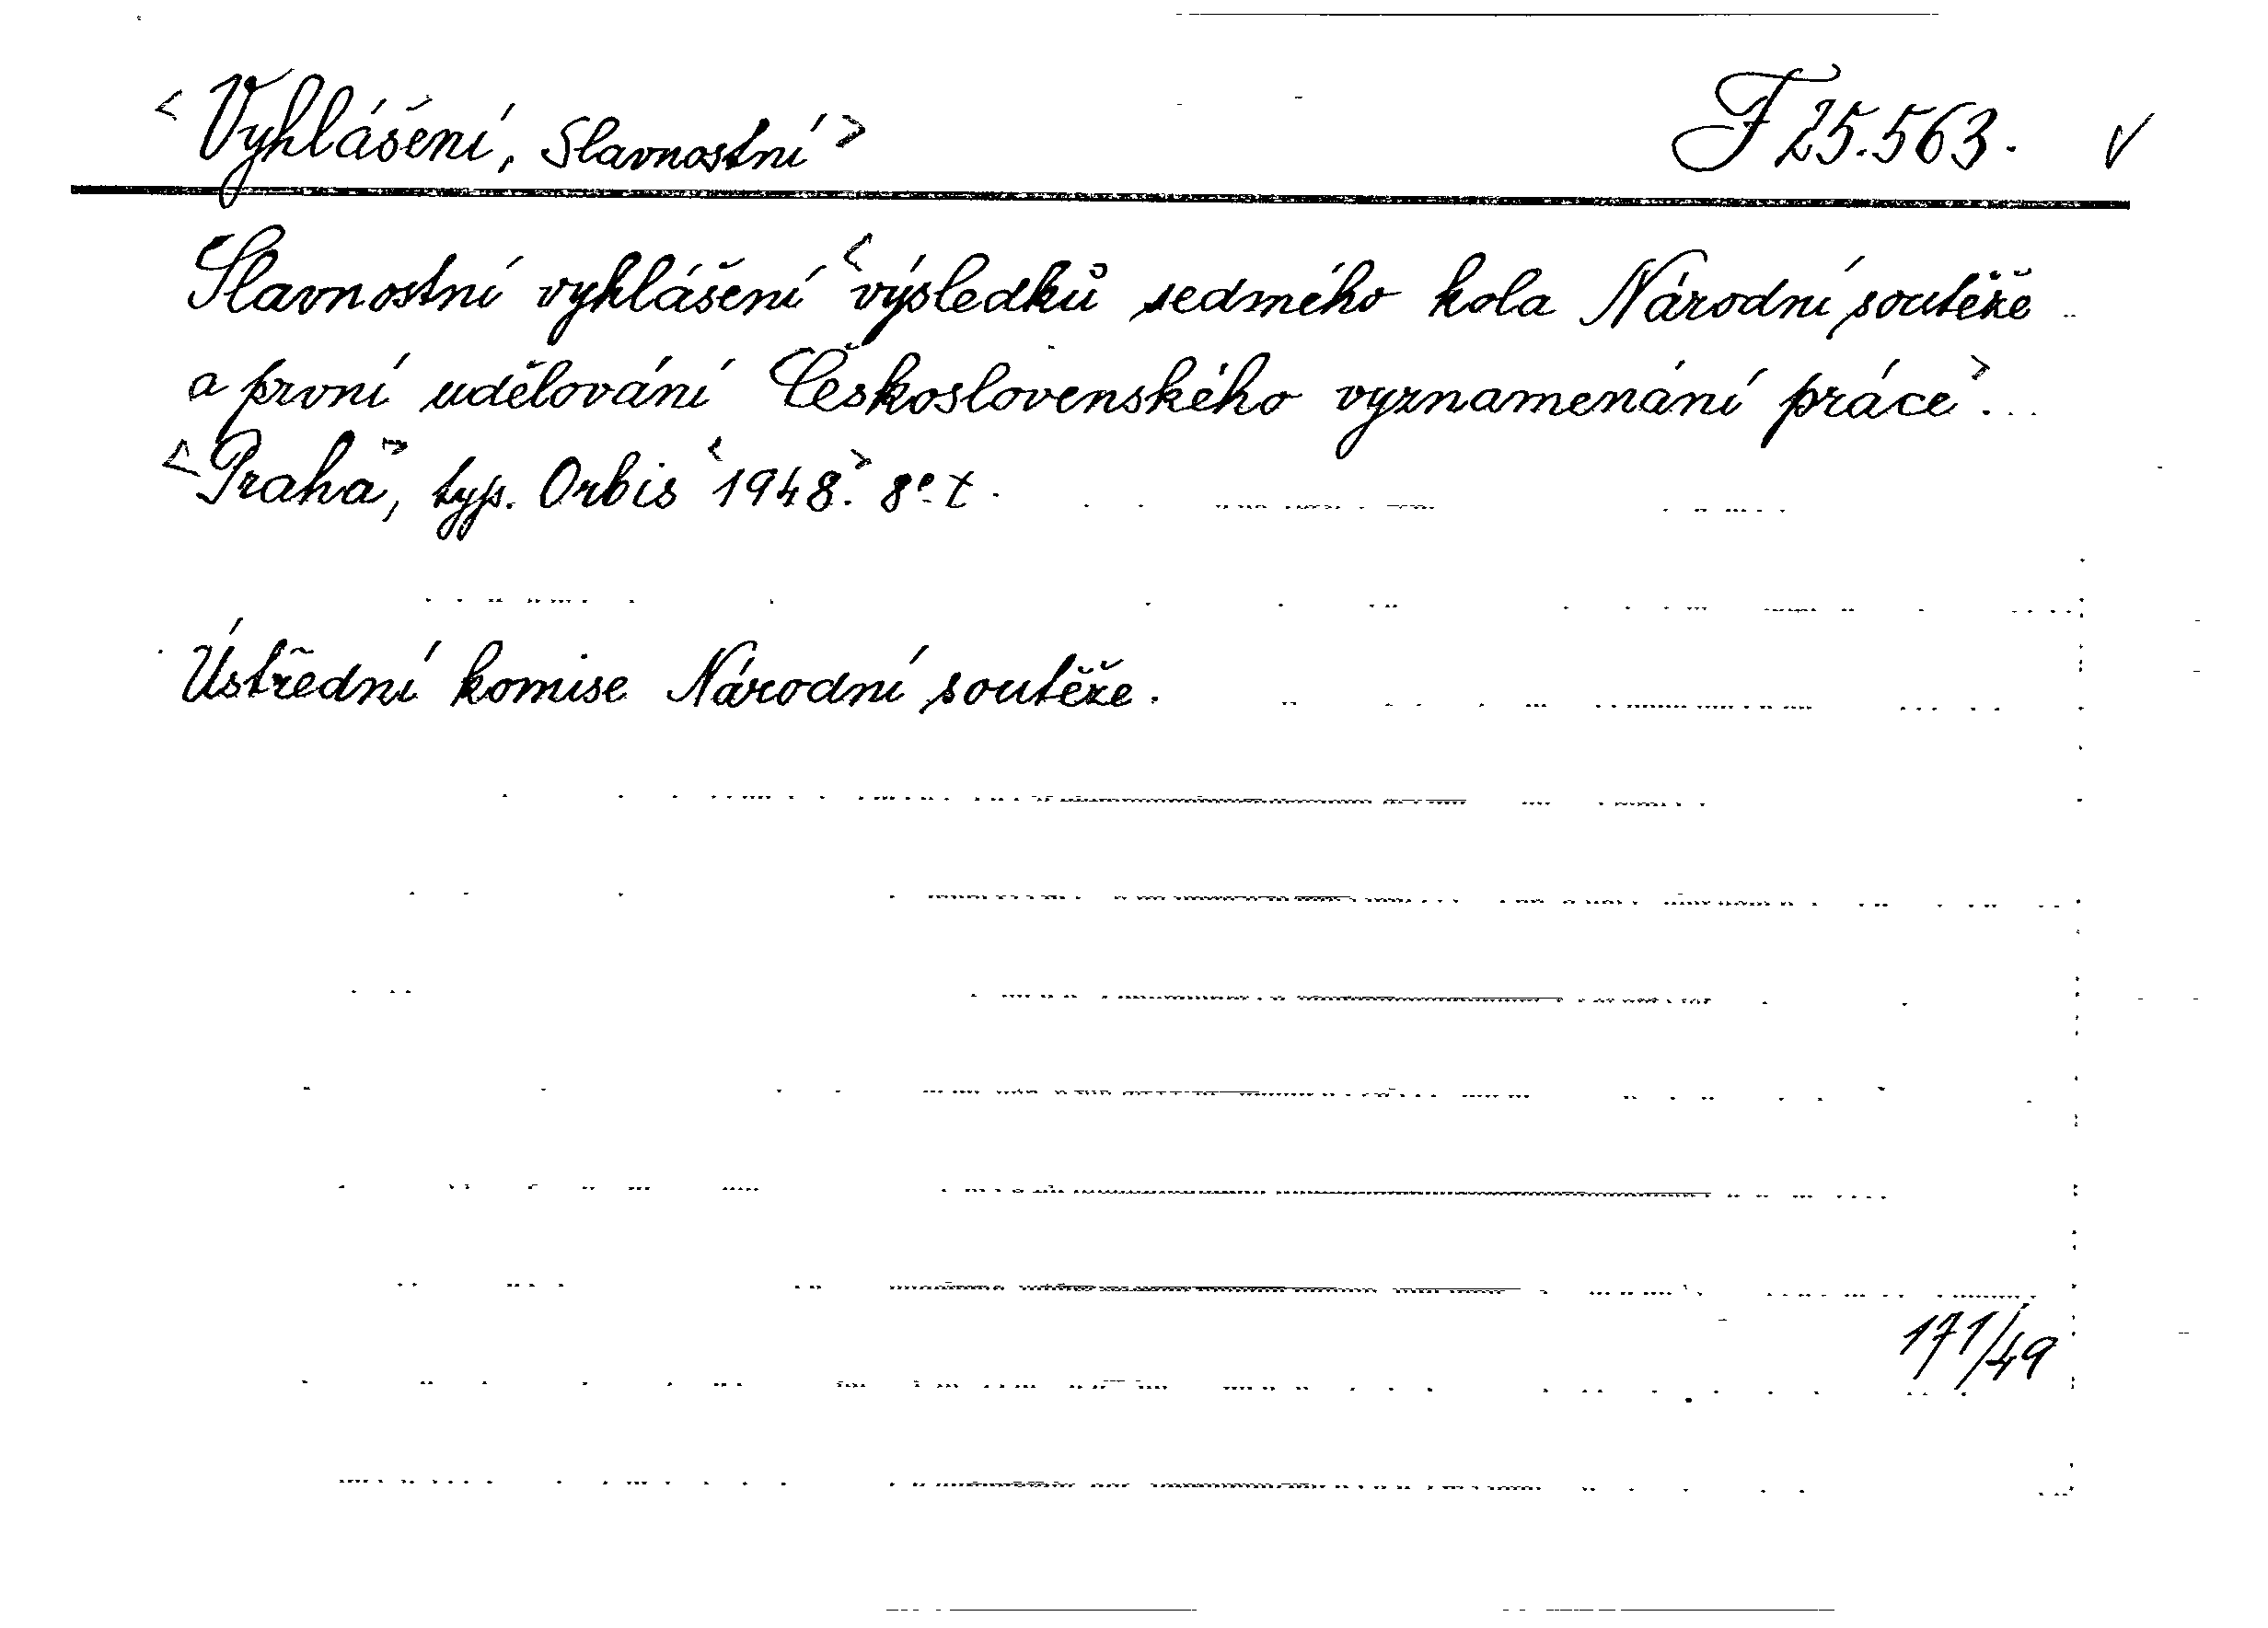 <Vyhlášení, Slavnostní> F 25.563. √
Slavnostní vyhlášení <výsledků sedmého kola Národní soutěže
a první udělování Československého vyznamenání práce>...
<Praha>, typ. Orbis <1948.> 8° t.
Ústřední komise Národní soutěže.
171/49